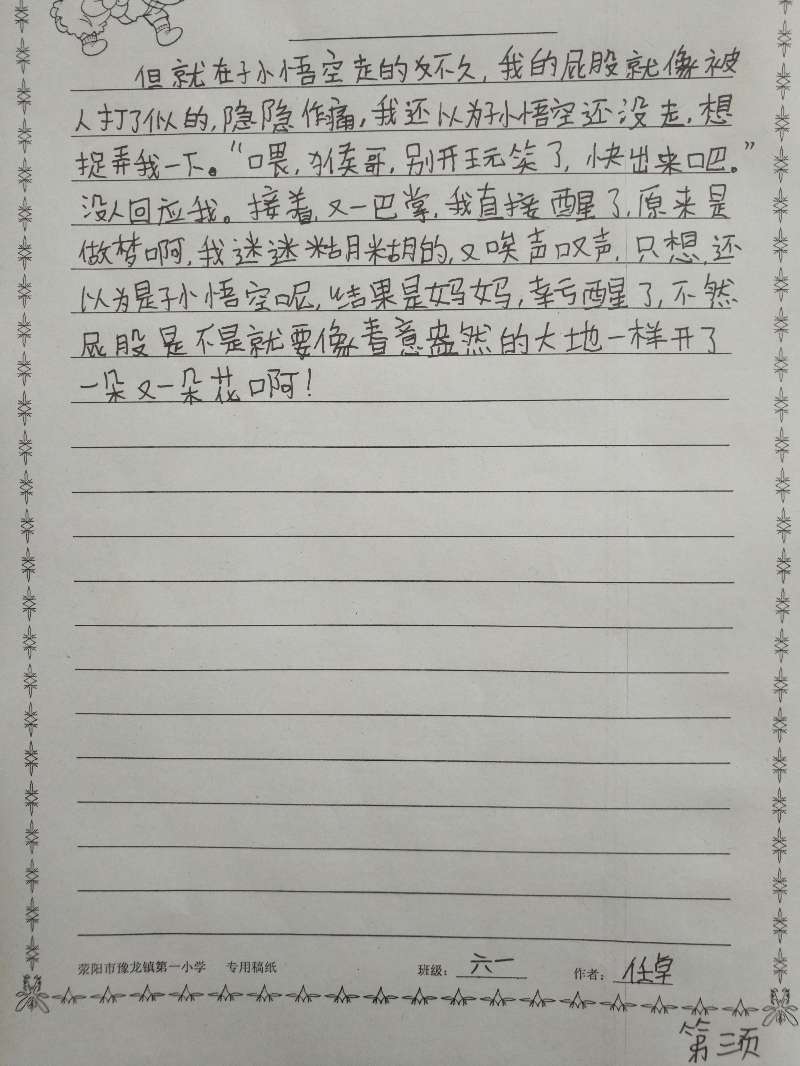 但就在孙悟空走的好不久，我的屁股就像被
人打了似的，隐隐作痛，我还以为孙悟空还没走，想
捉弄我一下。“喂，猴哥，别开玩笑了，快出来吧。”
没人回应我。接着，又一巴掌，我直接醒了，原来是
做梦啊，我迷迷糊糊的，又唉声叹声，只想，还
以为是孙悟空呢，结果是妈妈，幸亏醒了，不然
屁股是不是就要像春意盎然的大地一样开了
一朵又一朵花啊！
荥阳市豫龙镇第一小学 专用稿纸 班级：六一 作者：任卓
第三页